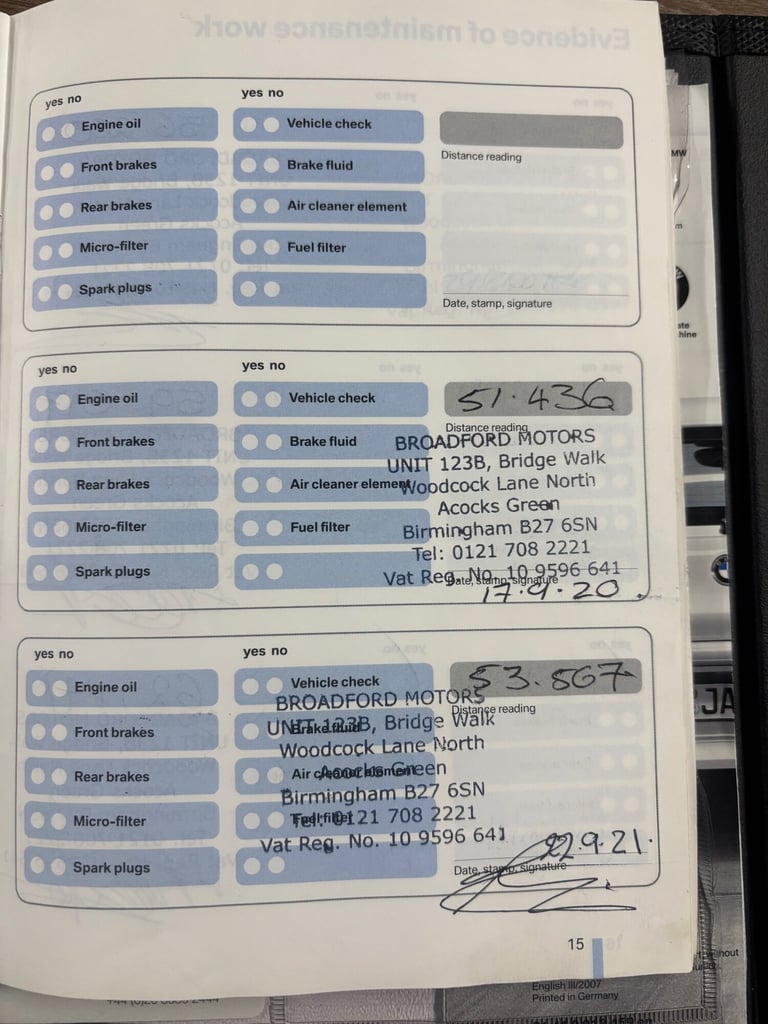 Evidence of maintenance work
yes no
yes no
Engine oil
Vehicle check
Distance reading
Front brakes
Brake fluid
Rear brakes
Air cleaner element
Micro-filter
Fuel filter
Spark plugs
Date, stamp, signature
yes no
yes no
Engine oil
Vehicle check
51.436
Distance reading
Front brakes
Brake fluid
BROADFORD MOTORS
UNIT 123B, Bridge Walk
Rear brakes
Air cleaner element
Woodcock Lane North
Acocks Green
Micro-filter
Fuel filter
Birmingham B27 6SN
Tel: 0121 708 2221
Spark plugs
Vat Reg. No. 10 9596 641
Date, stamp, signature
17.9.20
yes no
yes no
Engine oil
Vehicle check
53.567
Distance reading
BROADFORD MOTORS
Front brakes
Brake fluid
UNIT 123B, Bridge Walk
Woodcock Lane North
Rear brakes
Air cleaner element
Acocks Green
Birmingham B27 6SN
Micro-filter
Fuel filter
Tel: 0121 708 2221
Vat Reg. No. 10 9596 641
22.9.21.
Spark plugs
Date, stamp, signature
15
MW
JA
English III/2007
Printed in Germany